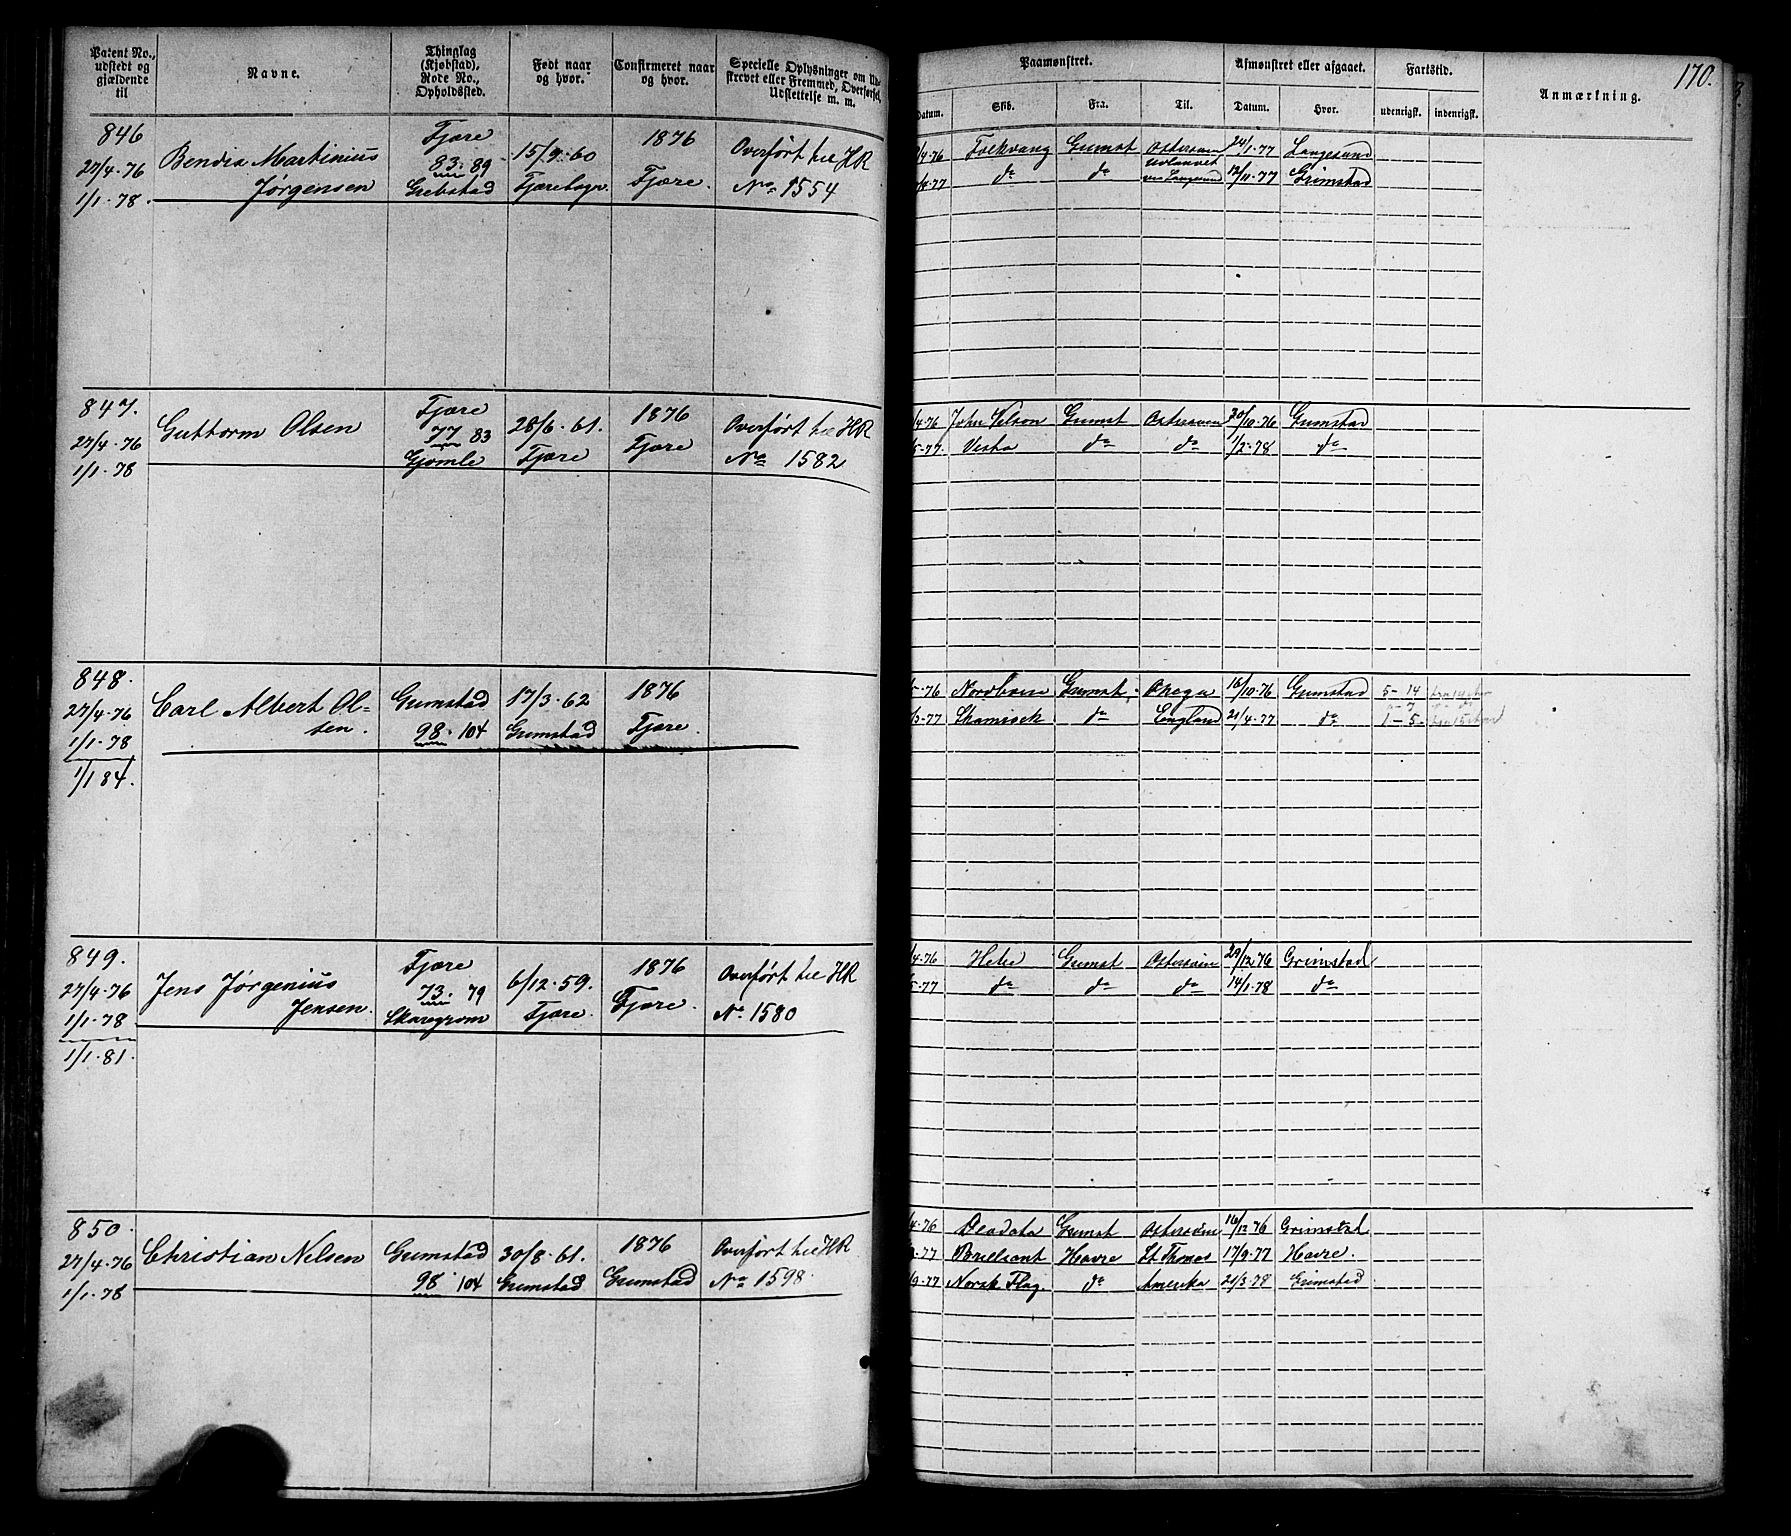 170.
Patent No., udstedt og gjældende til
Navne.
Thinglag (Kjøbstad), Rode No., Opholdssted.
Født naar og hvor.
Confirmeret naar og hvor.
Specielle Oplysninger om Ud-
skrevet eller Fremmed, Overførsel,
Udslettelse m. m.
Paamønstret.
Afmønstret eller afgaaet.
Fartstid.
Anmærkning.
Datum. Skib. Fra. Til. Datum. Hvor. udenrigsk. indenrigsk.
846 Fjære 1876
27/4-76 Bendix Martinius 83. 89 15/9-60 Overført til HR
1/1-78. Jørgensen Grebstad Fjære Fjære. No 1554
4-76 Folkvang Grimst Østersøen 24/1-77 Langesund
4-77 do do 12/11-77 Grimstad
847. Fjære 1876
27/4-76 Guttorm Olsen 77 83 28/6-61. Overført til HR
1/1-78 Gjømle Fjære Fjære No 1582
4-76 John Nelson Grimst Østersøen 30/10-76 Grimstad
5-77. Vesta do do 1/2-78 do
848. Grimstad 17/3-62 1876
27/4-76 Carl Albert Ol-
1/1-78 sen. 98. 104 Grimstad Fjære.
1/1 84.
5-76 Grimst. Onega 16/10-76 Grimstad 5-14
3-77 do England 21/4-77 do 1-5-
849. Fjære 1876
27/4-76 Jens Jørgenius 73. 79 6/12-59. Overført til HR
1/1-78 Jensen. Skaregrøm Fjære. Fjære. No 1580
1/1-81.
4-76 Hebe Grimst Østersøen 29/12-76 Grimstad
5-77 do do do 14/1-78 do
850. 1876
27/4-76 Christian Nelsen Grimstad 30/8-61. Overført til HR
1/1-78 98 104 Grimstad Grimstad No 1598.
4-76 Deodata Grimst Østersøen 16/12-76 Grimstad
-77 Brillant Havre St Thomas 17/9-77 Havre.
9-77 Norsk Flag. do Amerika 21/3-78 Grimstad